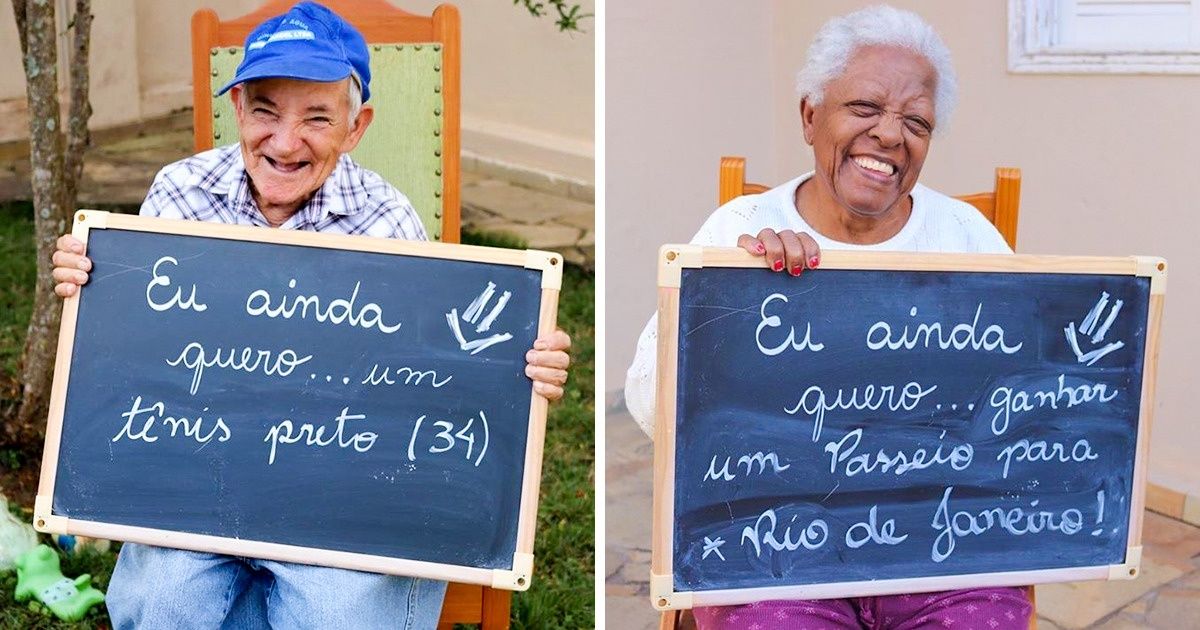 Eu ainda
quero... um
tênis preto (34)
Eu ainda
quero... ganhar
um Passeio para
* Rio de Janeiro!